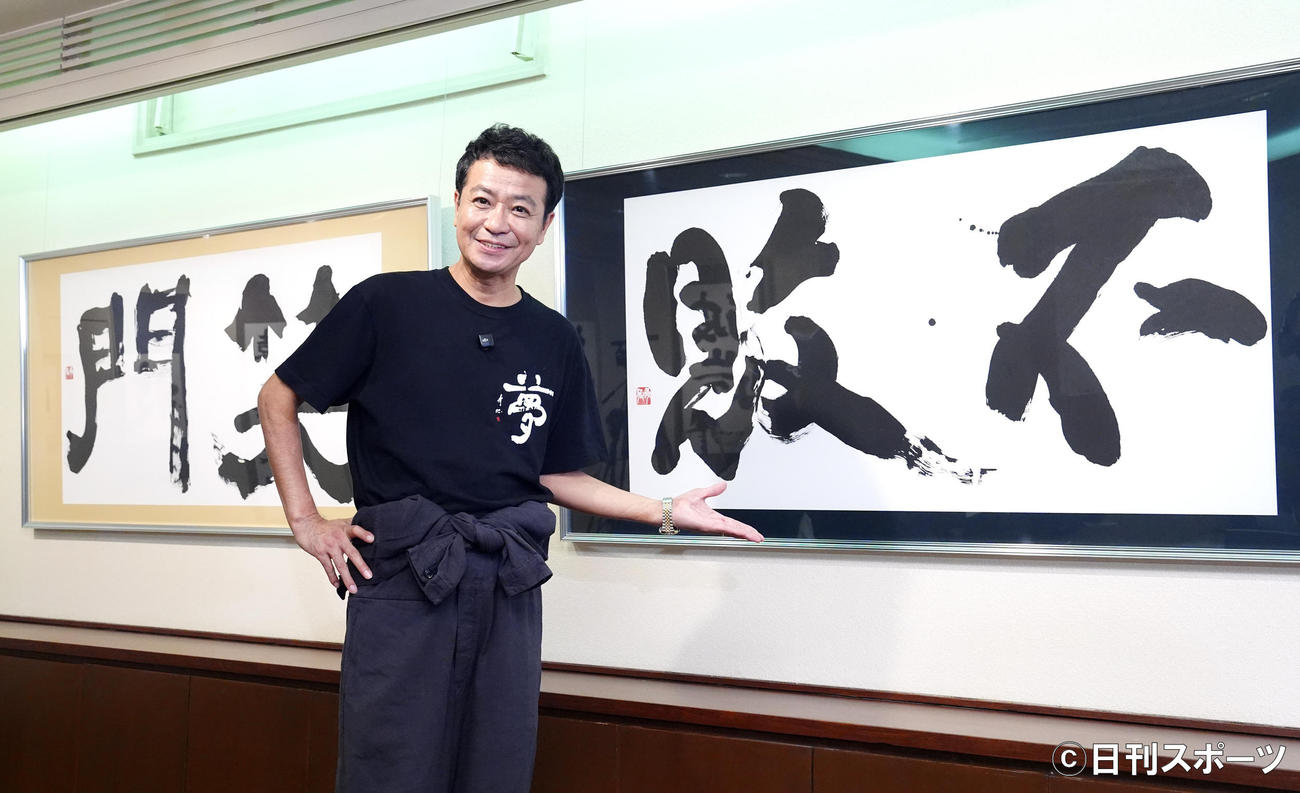 不敗
笑門
夢
©日刊スポーツ